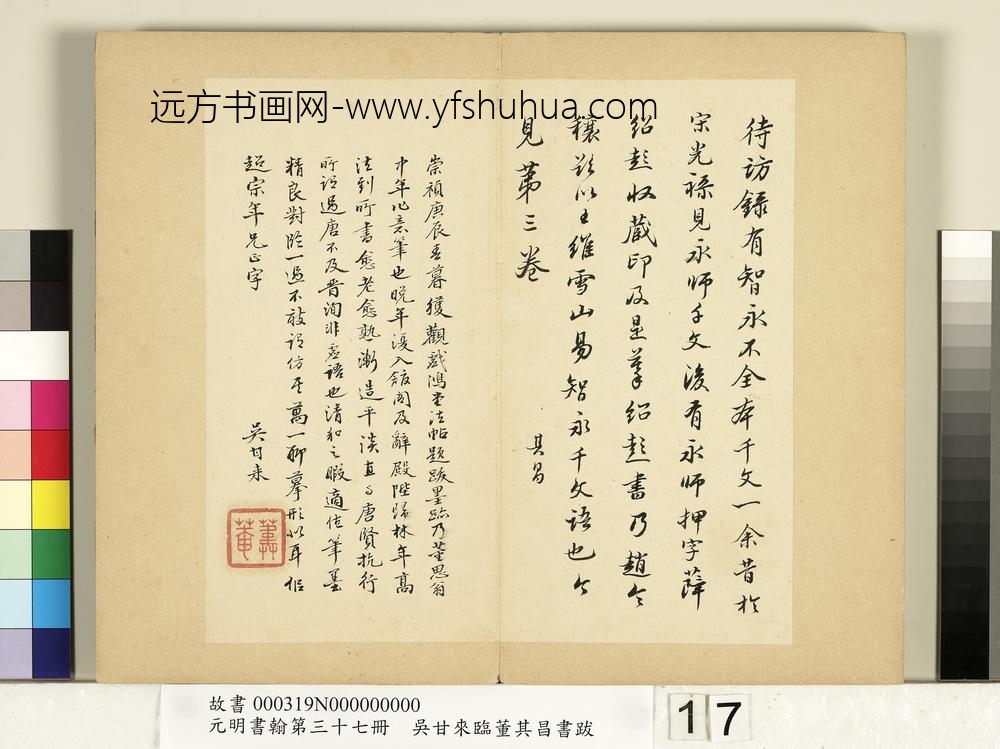 远方书画网-www.yfshuhua.com
待訪錄有智永不全本千文一余昔於
宋光祿見永師千文後有永師押字薛
紹彭收藏印及是草紹彭書乃趙令
穰跋以王維雪山易智永千文語也今
見第三卷
其昌
崇禎庚辰春暮獲觀戲鴻堂法帖題跋墨跡乃董思翁
中年作意筆也晚年復入館閣及辭殿陛歸林年高
法到所書愈老愈熟漸造平淡直與唐賢抗行
所謂過唐不及晉洵非虛語也清和之暇適值筆墨
精良對臨一過不敢謂仿其萬一聊摹形似耳
超宗年兄正字
吳甘来
故書 000319N000000000
元明書翰第三十七冊　吳甘來臨董其昌書跋
17